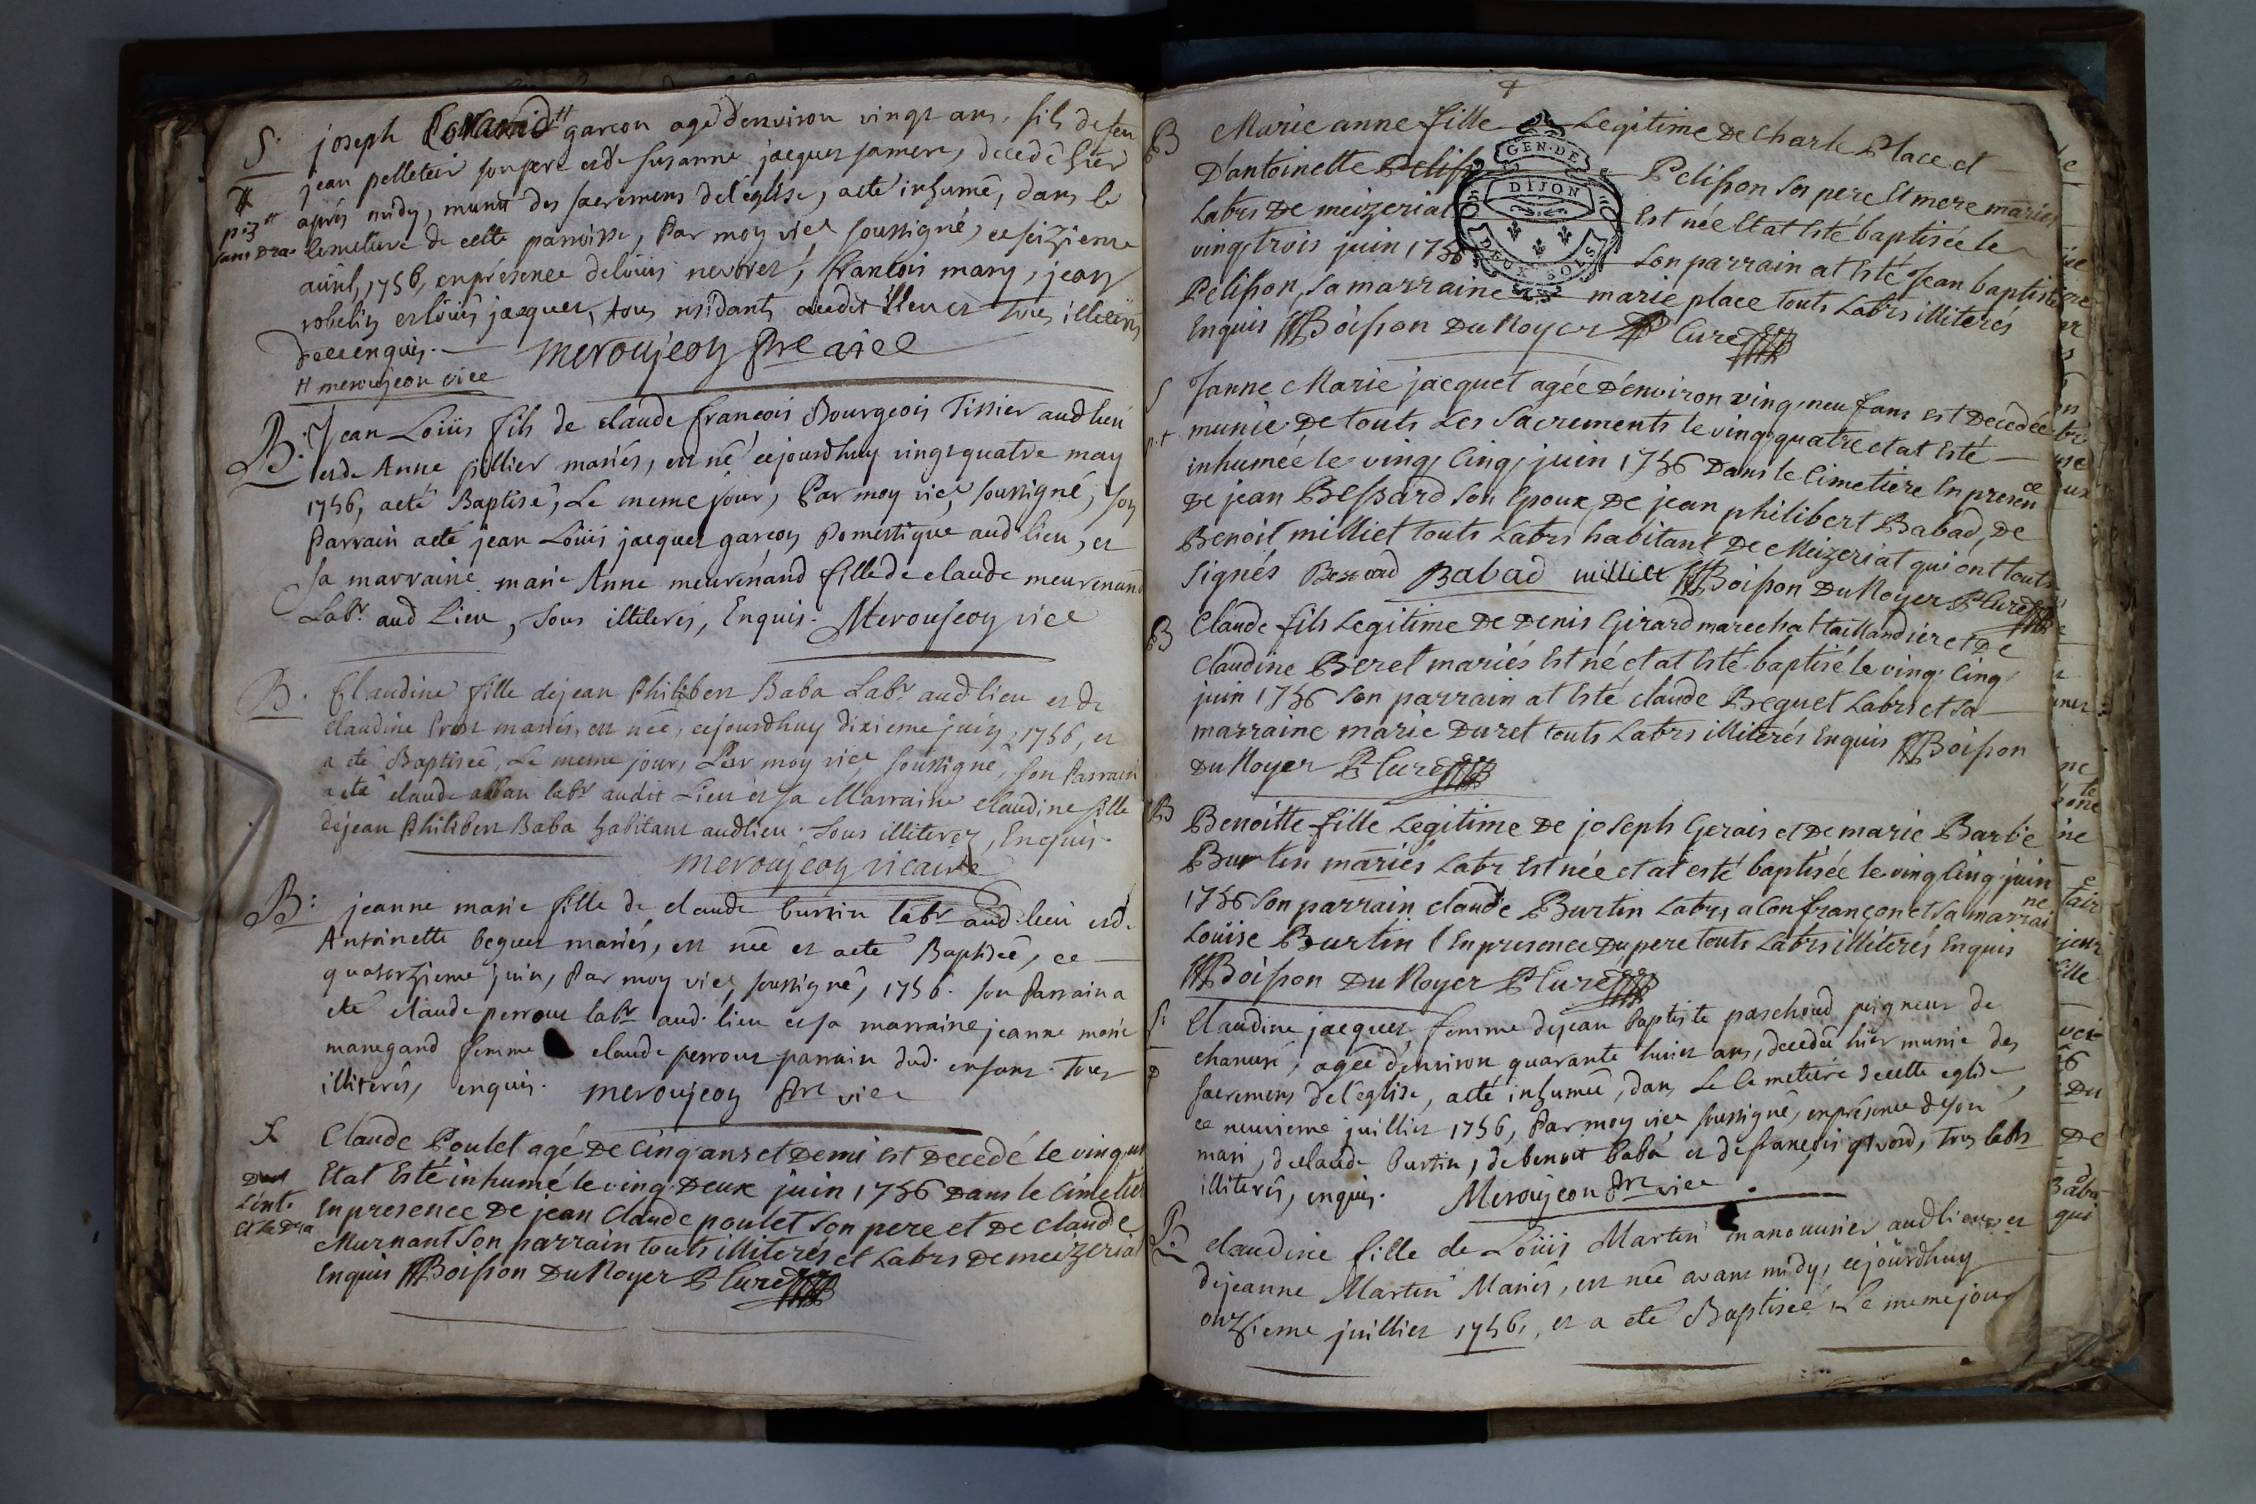 S. joseph garcon agé denviron vingt ans, fils de feu
jean pelletier son pere et de susanne jacquet sa mere, decedé hier
après midy, munit des sacremens de l'eglise, a eté inhumé, dans le
Cimetiere de cette parroisse, Par moy vice soussigné, ce seizieme
avril, 1756, en présence de loüis nevoret, francois mary, jean
robelin et loüis jacquet, tous residants audit lieu et tous illiterés
de ce enquis. Meroujeon Pre vice
# meroujeon vice
B. Jean Loüis fils de claude francois Bourgeois Tissier aud lieu
et de Anne fillier mariés, est né cejourdhuy vingt quatre may
1756, a eté Baptisé, Le meme jour, Par moy vice soussigné, son
Parrain a eté jean Loüis jacquet garcon Domestique aud lieu, et
sa marraine marie Anne meurenand fille de claude meurenand
Labr aud Lieu, Tous illiterés, Enquis. Meroujeon vice
B. Claudine fille de jean Philibert Baba Labr aud lieu et de
claudine Prost mariés, est née, cejourdhuy dixieme juin, 1756, et
a eté Baptisée, Le meme jour, Par moy vice soussigné, son Parrain
a eté claude labr audit Lieu et sa Marraine claudine fille
de jean Philibert Baba habitant aud lieu. Tous illiterez, Enquis.
meroujeon vicaire
B: jeanne marie fille de claude burtin labr aud. lieu et d.
Antoinette beguet mariés, est née et a eté Baptisée, ce
quatorzieme juin, Par moy vice, soussigné, 1756. son Parrain a
eté claude perrout labr aud. lieu et sa marraine jeanne marie
manegand femme claude perrout parrain dud. enfant. Tous
illiterés, enquis. meroujeon Pre vice
S Claude Poulet agé De Cinq ans et Demi est Decedé le vingt un
Et at Esté inhumé le ving. Deux juin 1756 Dans le Cimetier
En presence De jean Claude poulet son pere et De claude
Murnant son parrain touts illiterés et Labrs De meizeriat
Enquis Boisson Du Noyer P Curé
B Marie anne fille Legitime De Charle Place et
D'antoinette Pelisson son pere Et mere mariés
Labrs De meizeriat Est née Et at Esté baptisée le
vingt trois juin 1756 Son parrain at Esté Jean baptiste
Pelisson, Sa marraine marie place touts Labrs illiterés
Enquis Boisson Du Noyer P Curé
GEN. DE
DIJON
DEUX SOLS
S Janne Marie jacquet agée D'environ ving neuf ans est Decedée
munie De touts Les Sacrements le ving quatre et at Esté
inhumée le ving Cinq juin 1756 Dans le Cimetiere En presence
De jean Bessard Son Epoux, De jean philibert Babad, De
Benoit milliet touts Labrs habitant De Meizeriat qui ont touts
Signés Bessard Babad milliet Boisson Du Noyer P Curé
B Claude fils Legitime De Denis Girard marechal taillandier et De
Claudine Beret mariés Est né et at Esté baptisé le ving Cinq
juin 1756 Son parrain at Esté claude Beguet Labrs et Sa
marraine marie Duret touts Labrs illiterés Enquis Boisson
Du Noyer P Curé
B Benoitte fille Legitime De joseph Gerais et De marie Barbe
Burtin mariés Labr Est née et at esté baptisée le ving Cinq juin
1756 Son parrain claude Burtin Labrs a Confrançon et sa marraine
Louise Burtin En presence Du pere touts Labrs illiterés Enquis
Boisson Du Noyer P Curé
S: Claudine jacquet, femme de jean Baptiste paschoud peigneur de
chanvre, agée d'environ quarante huict ans, decedée hier munie des
sacremens de l'eglise, a eté inhumée, dans Le Cimetiere de cette eglise,
ce neuvieme juilliet 1756, Par moy vice soussigné, en présence de son
mari, de claude Burtin, de benoit baba et de francois tous labrs
illiterés, enquis. Meroujeon Pre vice.
B. claudine fille de Loüis Martin manouvrier aud lieu et
de jeanne Martin Mariés, est née avant midy, cejourdhuy
onzieme juilliet 1756, et a eté Baptisée Le meme jour